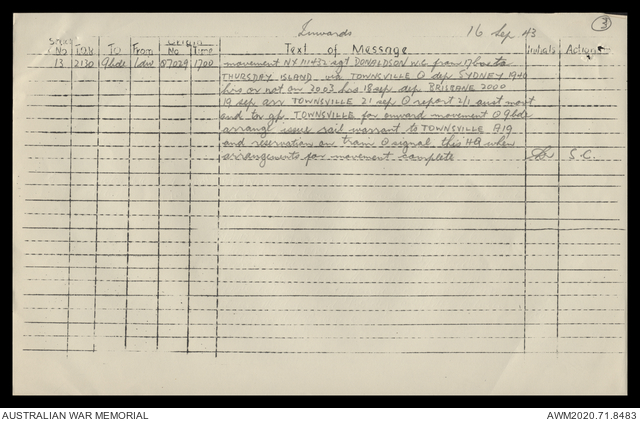 Inwards
16 Sep 43
3
Serial No TOR To From Origin No Time Text of Message Initials Action
13 2130 9bde 1dw 07029 1700 movement NX111432 sgt DONALDSON W.G. from 17 to
THURSDAY ISLAND via TOWNSVILLE O dep SYDNEY 1940
hrs or not on 2003 hrs 18 sep dep BRISBANE 2000
19 sep arr TOWNSVILLE 21 sep O report 2/1 aust
and tor gp. TOWNSVILLE for onward movement O 9bde
arrange issue rail warrant to TOWNSVILLE A19
and reservation on train O signal this HQ when
arrangements for movement complete S.C.
AUSTRALIAN WAR MEMORIAL
AWM2020.71.8483